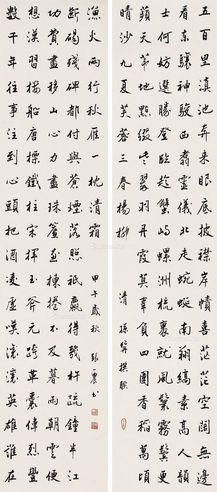 五百里滇池奔來眼底披襟岸幘喜茫茫空闊無邊
看東驤神駿西翥靈儀北走蜿蜒南翔縞素高人韻
士何妨選勝登臨趁蟹嶼螺洲梳裹就風鬟霧鬢更
蘋天葦地點綴些翠羽丹霞莫辜負四圍香稻萬頃
晴沙九夏芙蓉三春楊柳
清 孫髯撰聯
數千年往事注到心頭把酒凌虛嘆滾滾英雄誰在
想漢習樓船唐標鐵柱宋揮玉斧元跨革囊偉烈豐
功費盡移山心力儘珠簾畫棟捲不及暮雨朝雲便
斷碣殘碑都付與蒼煙落照只贏得幾杵疏鐘半江
漁火兩行秋雁一枕清霜
甲午歲秋 張震書